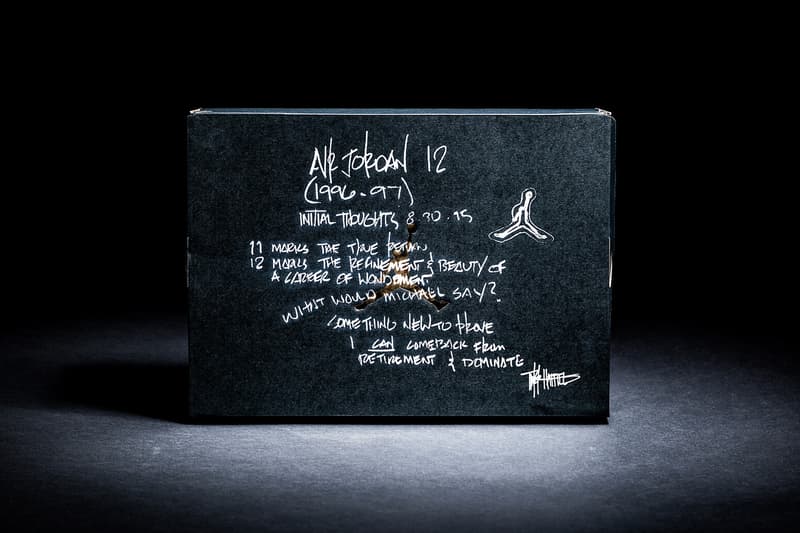 AIR JORDAN 12
(1996-97)
INITIAL THOUGHTS 8.30.95
11 MARKS THE TRUE RETURN,
12 MARKS THE REFINEMENT & BEAUTY OF
A CAREER OF WONDERMENT
WHAT WOULD MICHAEL SAY?
SOMETHING NEW TO PROVE
I CAN COMEBACK FROM
RETIREMENT & DOMINATE